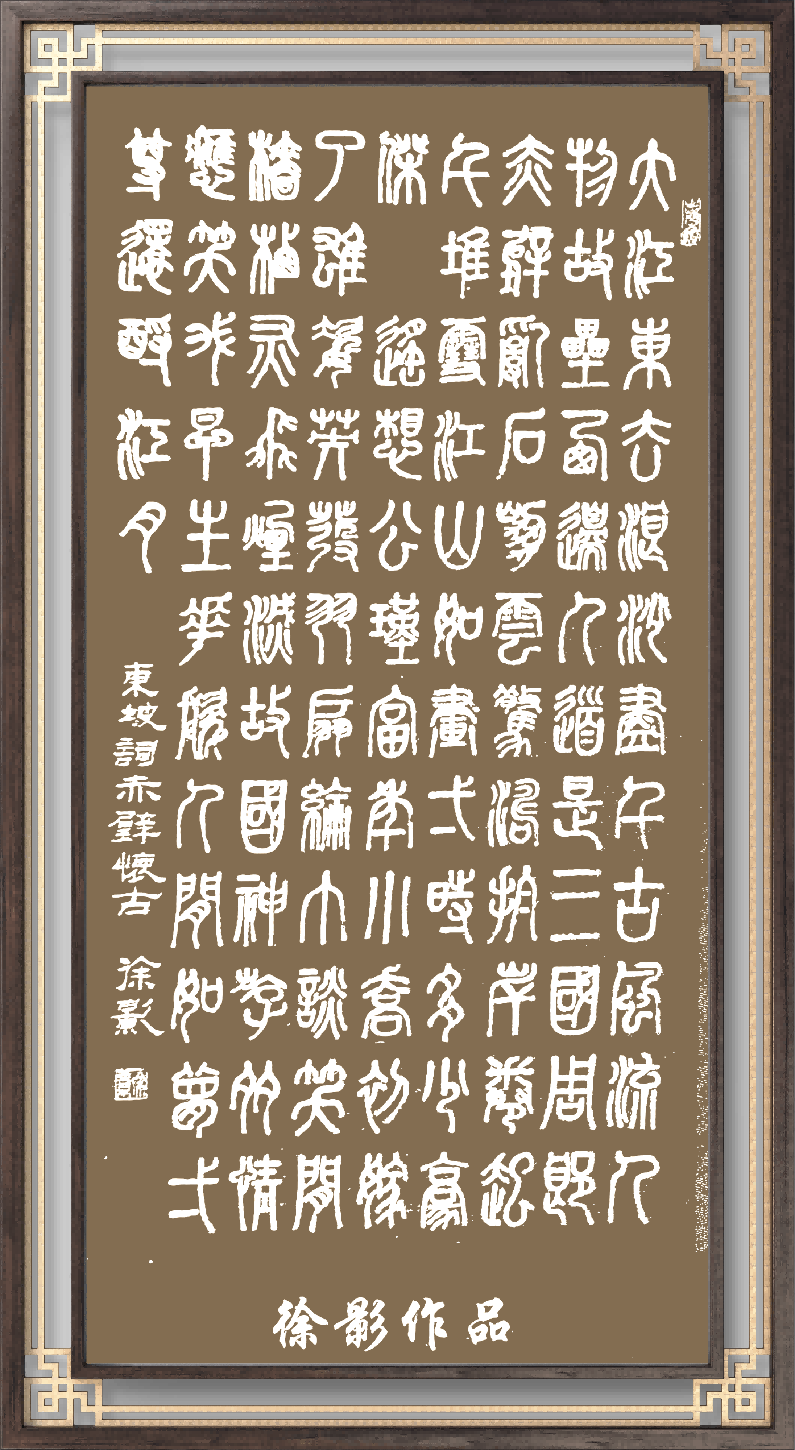 大江東去浪沙盡千古風流人
物故壘西邊人道是三國周郎
赤壁亂石崩雲驚濤拍岸捲起
千堆雪江山如畫弌時多少豪
傑 遙想公瑾當年小喬初嫁
了雄姿英發羽扇綸巾談笑間
檣櫓灰飛煙滅故國神游多情
應笑我早生華髮人間如夢弌
尊還酹江月
東坡詞赤壁懷古 徐影
徐影作品